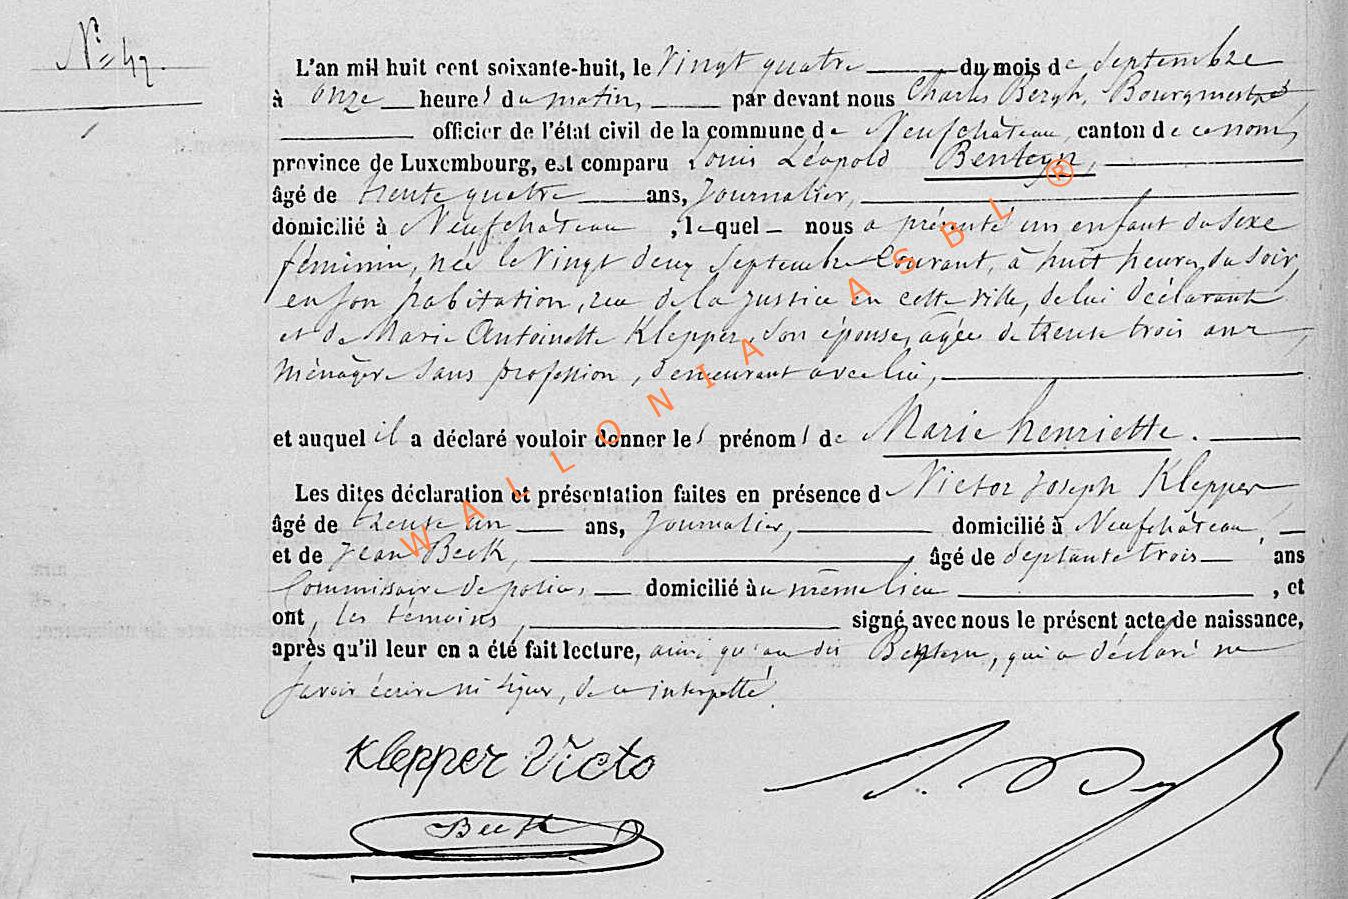 N° 47.
L'an mil huit cent soixante-huit, le Vingt quatre du mois de Septembre
à onze heures du matin, par devant nous Charles Bergh, Bourgmestre
officier de l'état civil de la commune de Neufchâteau, canton de ce nom,
province de Luxembourg, est comparu Louis Léopold Benteyn,
âgé de trente quatre ans, Journalier,
domicilié à Neufchâteau, lequel nous a présenté un enfant du sexe
féminin, née le Vingt deux Septembre Courant, à huit heures du soir,
en son habitation, rue de la Justice en cette ville, de lui déclarant
et de Marie Antoinette Klepper, son épouse, agée de trente trois ans,
Ménagère sans profession, demeurant avec lui,
et auquel il a déclaré vouloir donner les prénoms de Marie henriette.
Les dites déclaration et présentation faites en présence de Victor Joseph Klepper,
âgé de trente un ans, Journalier, domicilié à Neufchâteau,
et de Jean Beck, âgé de septante trois ans
Commissaire de police, domicilié au même lieu, et
ont, les témoins, signé avec nous le présent acte de naissance,
après qu'il leur en a été fait lecture, ainsi qu'au dit Benteyn, qui a déclaré ne
savoir écrire ni signer, de ce interpellé.
Klepper Victo
Beck
WALLONIA ASBL ®